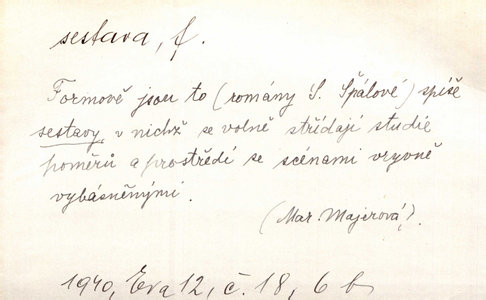 sestava, f.
Formově jsou to (romány S. Špálové) spíše
sestavy v nichž se volně střídají studie
poměrů a prostředí se scénami vryvně
vybásněnými.
(Mar. Majerová).
1940, Eva 12, č. 18, 6 b